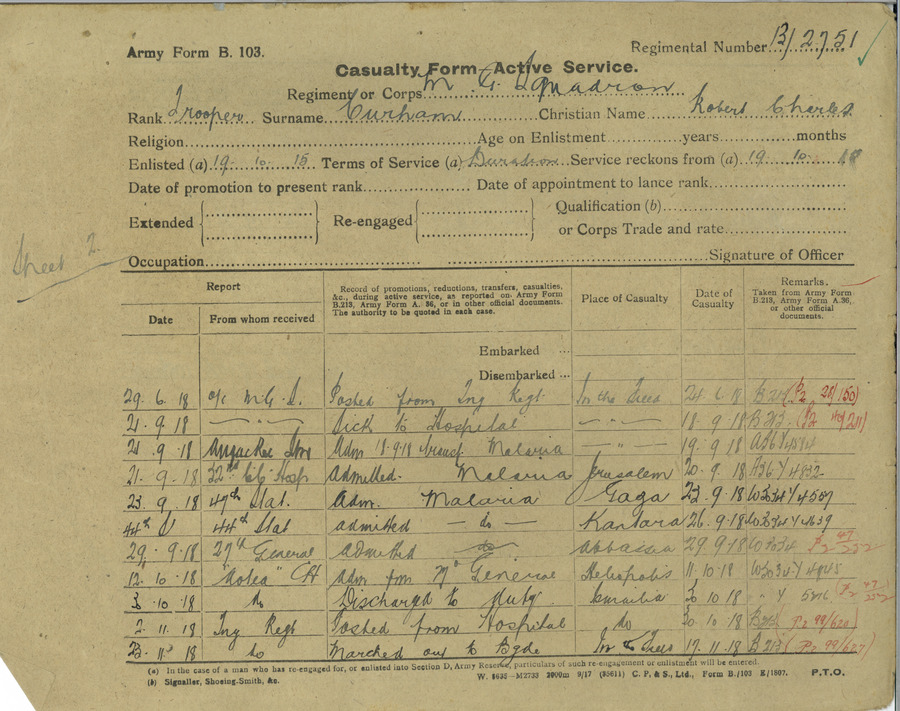 Army Form B. 103.
Regimental Number 13/2751
Casualty Form—Active Service.
Regiment or Corps M G Squadron
Rank Trooper Surname Curham Christian Name Robert Charles
Religion Age on Enlistment years months
Enlisted (a) 19. 10. 15 Terms of Service (a) Duration Service reckons from (a) 19 10
Date of promotion to present rank Date of appointment to lance rank
Extended Re-engaged Qualification (b)
or Corps Trade and rate
Sheet 2
Occupation Signature of Officer
Report
Date From whom received
Record of promotions, reductions, transfers, casualties, &c., during active service, as reported on Army Form B.213, Army Form A. 36, or in other official documents. The authority to be quoted in each case.
Place of Casualty
Date of Casualty
Remarks.
Taken from Army Form B.213, Army Form A.36, or other official documents.
Embarked ...
Disembarked ...
29. 6. 18 o/c M.G.S. Posted from Tng Regt In the Field 21 6 18 B 213
21. 9. 18 — " — Sick to Hospital — " — 18 9 18 B 213
21 9. 18 Adm 18-9-18 Malaria — " — 19. 9 18 A36
21. 9. 18 32nd Hosp Admitted. Malaria Jerusalem 20. 9. 18 A36 Y 4832
23. 9. 18 47th Stat. Adm. Malaria Gaza 23. 9. 18 W3034 Y 4507
44th 44th Stat admitted — do — Kantara 26. 9. 18 W3034 Y 4639
29. 9. 18 27th General Admitted — do — Abbassia 29 9 18 W3034
12. 10. 18 "Aotea" CH Adm fm General Heliopolis 11. 10. 18 W3034 Y 4845
3 10 18 do Discharged to duty Ismailia 30 10 18 " Y
2. 11. 18 Tng Regt Posted from Hospital do 30 10 18 B213 (P2 99/620)
23. 11. 18 do Marched out to Bgde In the Field 17. 11. 18 B 213 (P2 99/627)
(a) In the case of a man who has re-engaged for, or enlisted into Section D, Army Reserve, particulars of such re-engagement or enlistment will be entered.
(b) Signaller, Shoeing-Smith, &c.
W. 1635—M2733 2000m 9/17 (35611) C. P. & S., Ltd., Form B./103 E/1807. P.T.O.